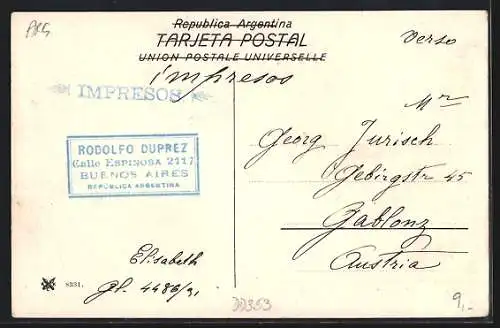 ARG
Republica Argentina
TARJETA POSTAL
UNION POSTALE UNIVERSELLE
Verso
impresos
IMPRESOS.
Mr
Georg Jurisch
Gebirgstr 45
Gablonz
Austria
RODOLFO DUPREZ
Calle ESPINOSA 2117
BUENOS AIRES
REPÚBLICA ARGENTINA
Elisabeth
8331.
DD353
9,-